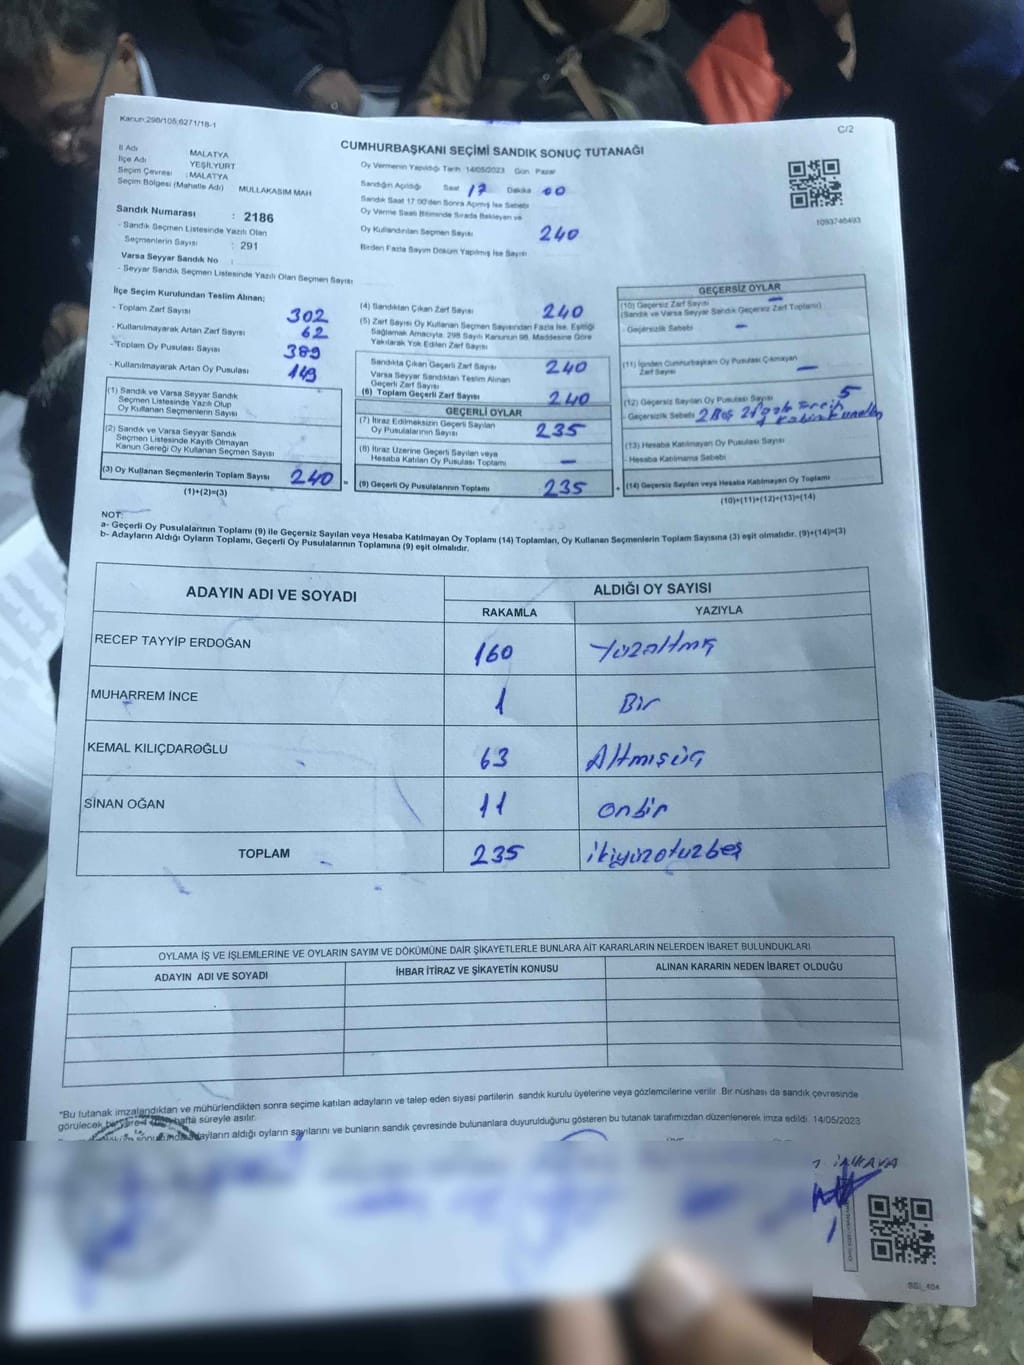 Kanun:298/105;6271/18-1
C/2
CUMHURBAŞKANI SEÇİMİ SANDIK SONUÇ TUTANAĞI
İl Adı MALATYA
İlçe Adı YEŞİLYURT
Seçim Çevresi : MALATYA
Seçim Bölgesi (Mahalle Adı) MULLAKASIM MAH
Sandık Numarası : 2186
- Sandık Seçmen Listesinde Yazılı Olan
Seçmenlerin Sayısı : 291
Varsa Seyyar Sandık No :
- Seyyar Sandık Seçmen Listesinde Yazılı Olan Seçmen Sayısı
Oy Vermenin Yapıldığı Tarih 14/05/2023 Gün Pazar
Sandığın Açıldığı Saat 17 Dakika 00
Sandık Saat 17:00'den Sonra Açılmış İse Sebebi
Oy Verme Saati Bitiminde Sırada Bekleyen ve
Oy Kullandırılan Seçmen Sayısı 240
Birden Fazla Sayım Döküm Yapılmış İse Sayısı
1093746493
İlçe Seçim Kurulundan Teslim Alınan;
- Toplam Zarf Sayısı 302
- Kullanılmayarak Artan Zarf Sayısı 62
- Toplam Oy Pusulası Sayısı 389
- Kullanılmayarak Artan Oy Pusulası 149
(1) Sandık ve Varsa Seyyar Sandık
Seçmen Listesinde Yazılı Olup
Oy Kullanan Seçmenlerin Sayısı
(2) Sandık ve Varsa Seyyar Sandık
Seçmen Listesinde Kayıtlı Olmayan
Kanun Gereği Oy Kullanan Seçmen Sayısı
(3) Oy Kullanan Seçmenlerin Toplam Sayısı 240 =
(1)+(2)=(3)
(4) Sandıktan Çıkan Zarf Sayısı 240
(5) Zarf Sayısı Oy Kullanan Seçmen Sayısından Fazla İse, Eşitliği
Sağlamak Amacıyla, 298 Sayılı Kanunun 98. Maddesine Göre
Yakılarak Yok Edilen Zarf Sayısı
Sandıkta Çıkan Geçerli Zarf Sayısı 240
Varsa Seyyar Sandıktan Teslim Alınan
Geçerli Zarf Sayısı
(6) Toplam Geçerli Zarf Sayısı 240
GEÇERLİ OYLAR
(7) İtiraz Edilmeksizin Geçerli Sayılan
Oy Pusulalarının Sayısı 235
(8) İtiraz Üzerine Geçerli Sayılan veya
Hesaba Katılan Oy Pusulası Toplamı —
(9) Geçerli Oy Pusulalarının Toplamı 235 +
GEÇERSİZ OYLAR
(10) Geçersiz Zarf Sayısı —
(Sandık ve Varsa Seyyar Sandık Geçersiz Zarf Toplamı)
- Geçersizlik Sebebi —
(11) İçinden Cumhurbaşkanı Oy Pusulası Çıkmayan
Zarf Sayısı —
(12) Geçersiz Sayılan Oy Pusulası Sayısı 5
- Geçersizlik Sebebi 2 Boş 2 fazla Tercih
(13) Hesaba Katılmayan Oy Pusulası Sayısı
- Hesaba Katılmama Sebebi
(14) Geçersiz Sayılan veya Hesaba Katılmayan Oy Toplamı
(10)+(11)+(12)+(13)=(14)
NOT:
a- Geçerli Oy Pusulalarının Toplamı (9) ile Geçersiz Sayılan veya Hesaba Katılmayan Oy Toplamı (14) Toplamları, Oy Kullanan Seçmenlerin Toplam Sayısına (3) eşit olmalıdır. (9)+(14)=(3)
b- Adayların Aldığı Oyların Toplamı, Geçerli Oy Pusulalarının Toplamına (9) eşit olmalıdır.
ADAYIN ADI VE SOYADI ALDIĞI OY SAYISI
RAKAMLA YAZIYLA
RECEP TAYYİP ERDOĞAN 160 Yüzaltmış
MUHARREM İNCE 1 Bir
KEMAL KILIÇDAROĞLU 63 Altmışüç
SİNAN OĞAN 11 Onbir
TOPLAM 235 ikiyüzotuzbeş
OYLAMA İŞ VE İŞLEMLERİNE VE OYLARIN SAYIM VE DÖKÜMÜNE DAİR ŞİKAYETLERLE BUNLARA AİT KARARLARIN NELERDEN İBARET BULUNDUKLARI
ADAYIN ADI VE SOYADI İHBAR İTİRAZ VE ŞİKAYETİN KONUSU ALINAN KARARIN NEDEN İBARET OLDUĞU
"Bu tutanak imzalandıktan ve mühürlendikten sonra seçime katılan adayların ve talep eden siyasi partilerin sandık kurulu üyelerine veya gözlemcilerine verilir. Bir nüshası da sandık çevresinde
görülecek bir yere hafta süreyle asılır.
adayların aldığı oyların sayılarını ve bunların sandık çevresinde bulunanlara duyurulduğunu gösteren bu tutanak tarafımızdan düzenlenerek imza edildi. 14/05/2023